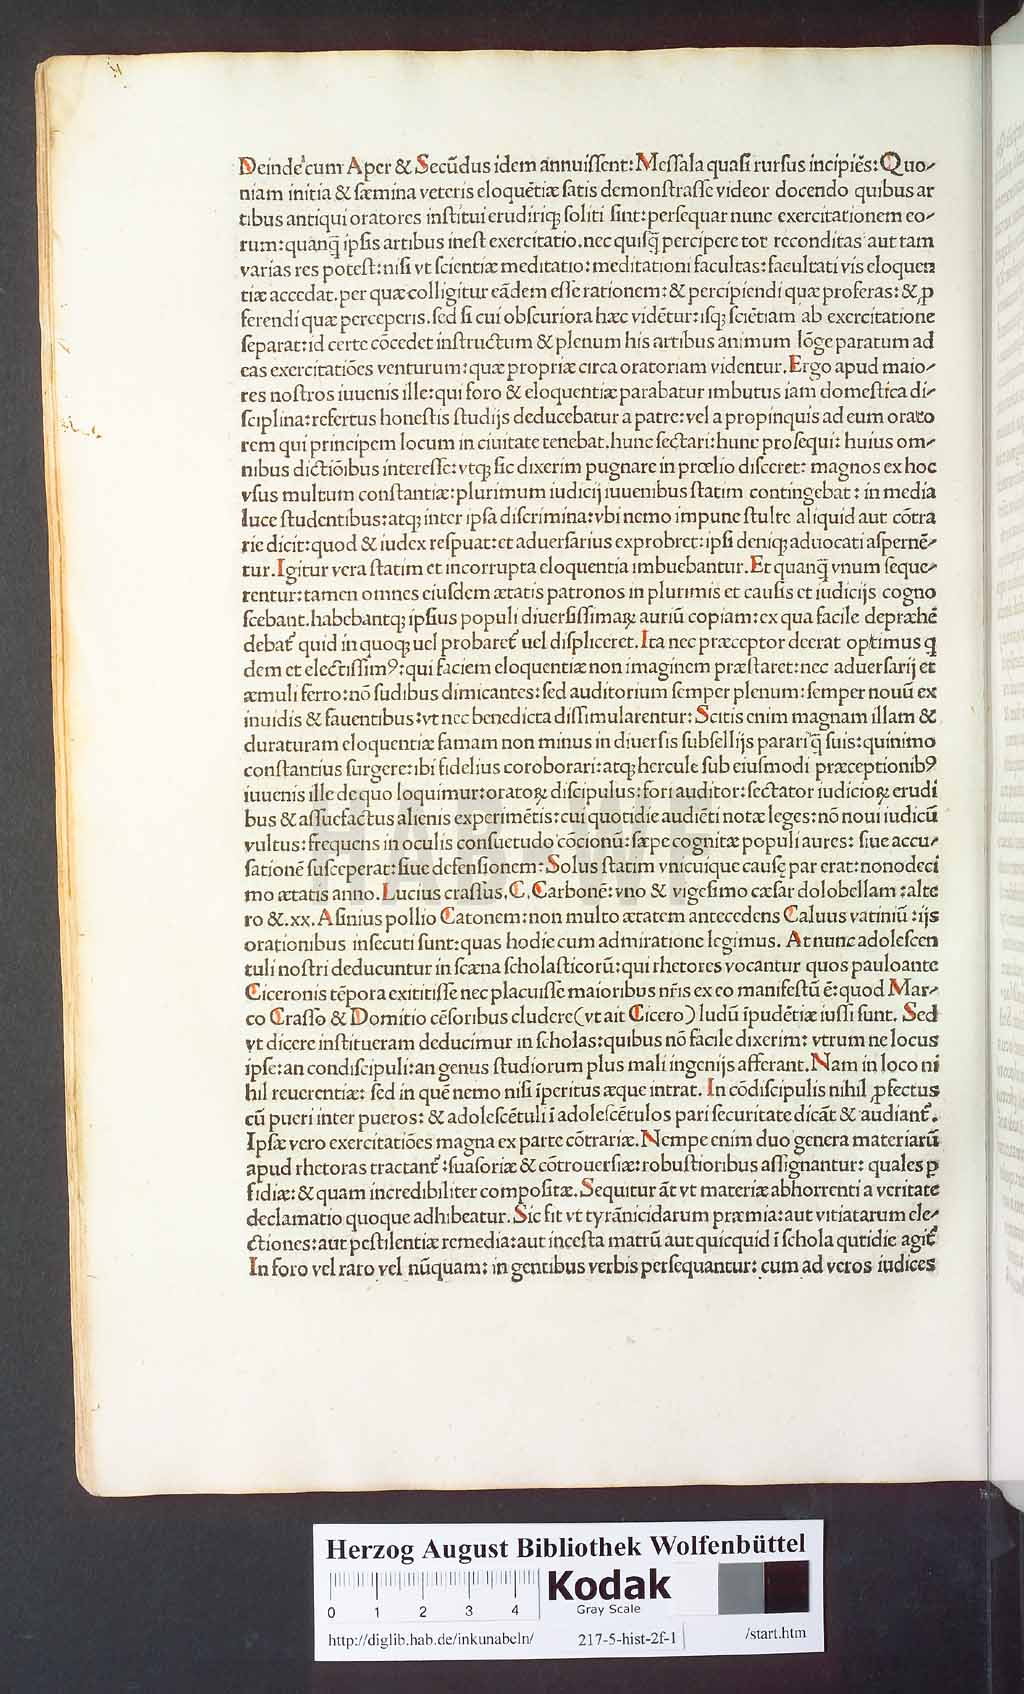 Deinde cum Aper & Secūdus idem annuiſſent: Meſſala quaſi rurſus incipiēs: Quo-
niam initia & ſæmina veteris eloquētiæ ſatis demonſtraſſe videor docendo quibus ar
tibus antiqui oratores inſtitui erudiriqꝫ ſoliti ſint: perſequar nunc exercitationem eo-
rum: quanq̄ ipſis artibus ineſt exercitatio. nec quiſq̄ percipere tot reconditas aut tam
varias res poteſt: niſi vt ſcientiæ meditatio: meditationi facultas: facultati vis eloquen
tiæ accedat. per quæ colligitur eādem eſſe rationem: & percipiendi quæ proferas: & ꝓ
ferendi quæ perceperis. ſed ſi cui obſcuriora hæc vidētur: iſqꝫ ſciētiam ab exercitatione
ſeparat: id certe cōcedet inſtructum & plenum his artibus animum lōge paratum ad
eas exercitatiōes venturum: quæ propriæ circa oratoriam videntur. Ergo apud maio-
res noſtros iuuenis ille: qui foro & eloquentiæ parabatur imbutus iam domeſtica di-
ſciplina: refertus honeſtis ſtudijs deducebatur a patre: vel a propinquis ad eum orato
rem qui principem locum in ciuitate tenebat. hunc ſectari: hunc proſequi: huius om-
nibus dictiōibus intereſſe: vtqꝫ ſic dixerim pugnare in prœlio diſceret: magnos ex hoc
vſus multum conſtantiæ: plurimum iudicij iuuenibus ſtatim contingebat: in media
luce ſtudentibus: atqꝫ inter ipſa diſcrimina: vbi nemo impune ſtulte aliquid aut cōtra
rie dicit: quod & iudex reſpuat: et aduerſarius exprobret: ipſi deniqꝫ aduocati aſpernē-
tur. Igitur vera ſtatim et incorrupta eloquentia imbuebantur. Et quanq̄ vnum ſeque-
rentur: tamen omnes eiuſdem ætatis patronos in plurimis et cauſis et iudicijs cogno
ſcebant. habebantqꝫ ipſius populi diuerſiſſimaꝝ auriū copiam: ex qua facile depræhē
debat᷑ quid in quoqꝫ uel probaret᷑ uel diſpliceret. Ita nec præceptor deerat optimus q
dem et electiſſimꝰ: qui faciem eloquentiæ non imaginem præſtaret: nec aduerſarij et
æmuli ferro: nō ſudibus dimicantes: ſed auditorium ſemper plenum: ſemper nouū ex
inuidis & fauentibus: vt nec benedicta diſſimularentur: Scitis enim magnam illam &
duraturam eloquentiæ famam non minus in diuerſis ſubſellijs parari q̄ ſuis: quinimo
conſtantius ſurgere: ibi fidelius coroborari: atqꝫ hercule ſub eiuſmodi præceptionibꝰ
iuuenis ille de quo loquimur: oratoꝝ diſcipulus: fori auditor: ſectator iudicioꝝ erudi
bus & aſſuefactus alienis experimētis: cui quotidie audiēti notæ leges: nō noui iudicū
vultus: frequens in oculis conſuetudo cōcionū: ſæpe cognitæ populi aures: ſiue accu-
ſationē ſuſceperat: ſiue defenſionem: Solus ſtatim vnicuique cauſę par erat: nonodeci
mo ætatis anno. Lucius craſſus. C. Carbonē: vno & vigeſimo cæſar dolobellam: alte
ro &.xx. Aſinius pollio Catonem: non multo ætatem antecedens Caluus vatiniū: ijs
orationibus inſecuti ſunt: quas hodie cum admiratione legimus. At nunc adoleſcen
tuli noſtri deducuntur in ſcæna ſcholaſticorū: qui rhetores vocantur quos pauloante
Ciceronis tēpora exititiſſe nec placuiſſe maioribus nr̄is ex eo manifeſtū ē: quod Mar-
co Craſſo & Domitio cēſoribus cludere (vt ait Cicero) ludū īpudētiæ iuſſi ſunt. Sed
vt dicere inſtitueram deducimur in ſcholas: quibus nō facile dixerim: vtrum ne locus
ipſe: an condiſcipuli: an genus ſtudiorum plus mali ingenijs afferant. Nam in loco ni
hil reuerentiæ: ſed in quē nemo niſi īperitus æque intrat. In cōdiſcipulis nihil ꝓfectus
cū pueri inter pueros: & adoleſcētuli ī adoleſcētulos pari ſecuritate dicāt & audiant᷑.
Ipſæ vero exercitatiōes magna ex parte cōtrariæ. Nempe enim duo genera materiarū
apud rhetoras tractant᷑: ſuaſoriæ & cōtrouerſiæ: robuſtioribus aſſignantur: quales ꝑ
fidiæ: & quam incredibiliter compoſitæ. Sequitur āt vt materiæ abhorrenti a veritate
declamatio quoque adhibeatur. Sic fit vt tyrānicidarum præmia: aut vitiatarum ele-
ctiones: aut peſtilentiæ remedia: aut inceſta matrū aut quicquid ī ſchola qutidie agit᷑
In foro vel raro vel nūquam: in gentibus verbis perſequantur: cum ad veros iudices
HAB WF
Herzog August Bibliothek Wolfenbüttel
0 1 2 3 4
Kodak
Gray Scale
http://diglib.hab.de/inkunabeln/ 217-5-hist-2f-1 /start.htm